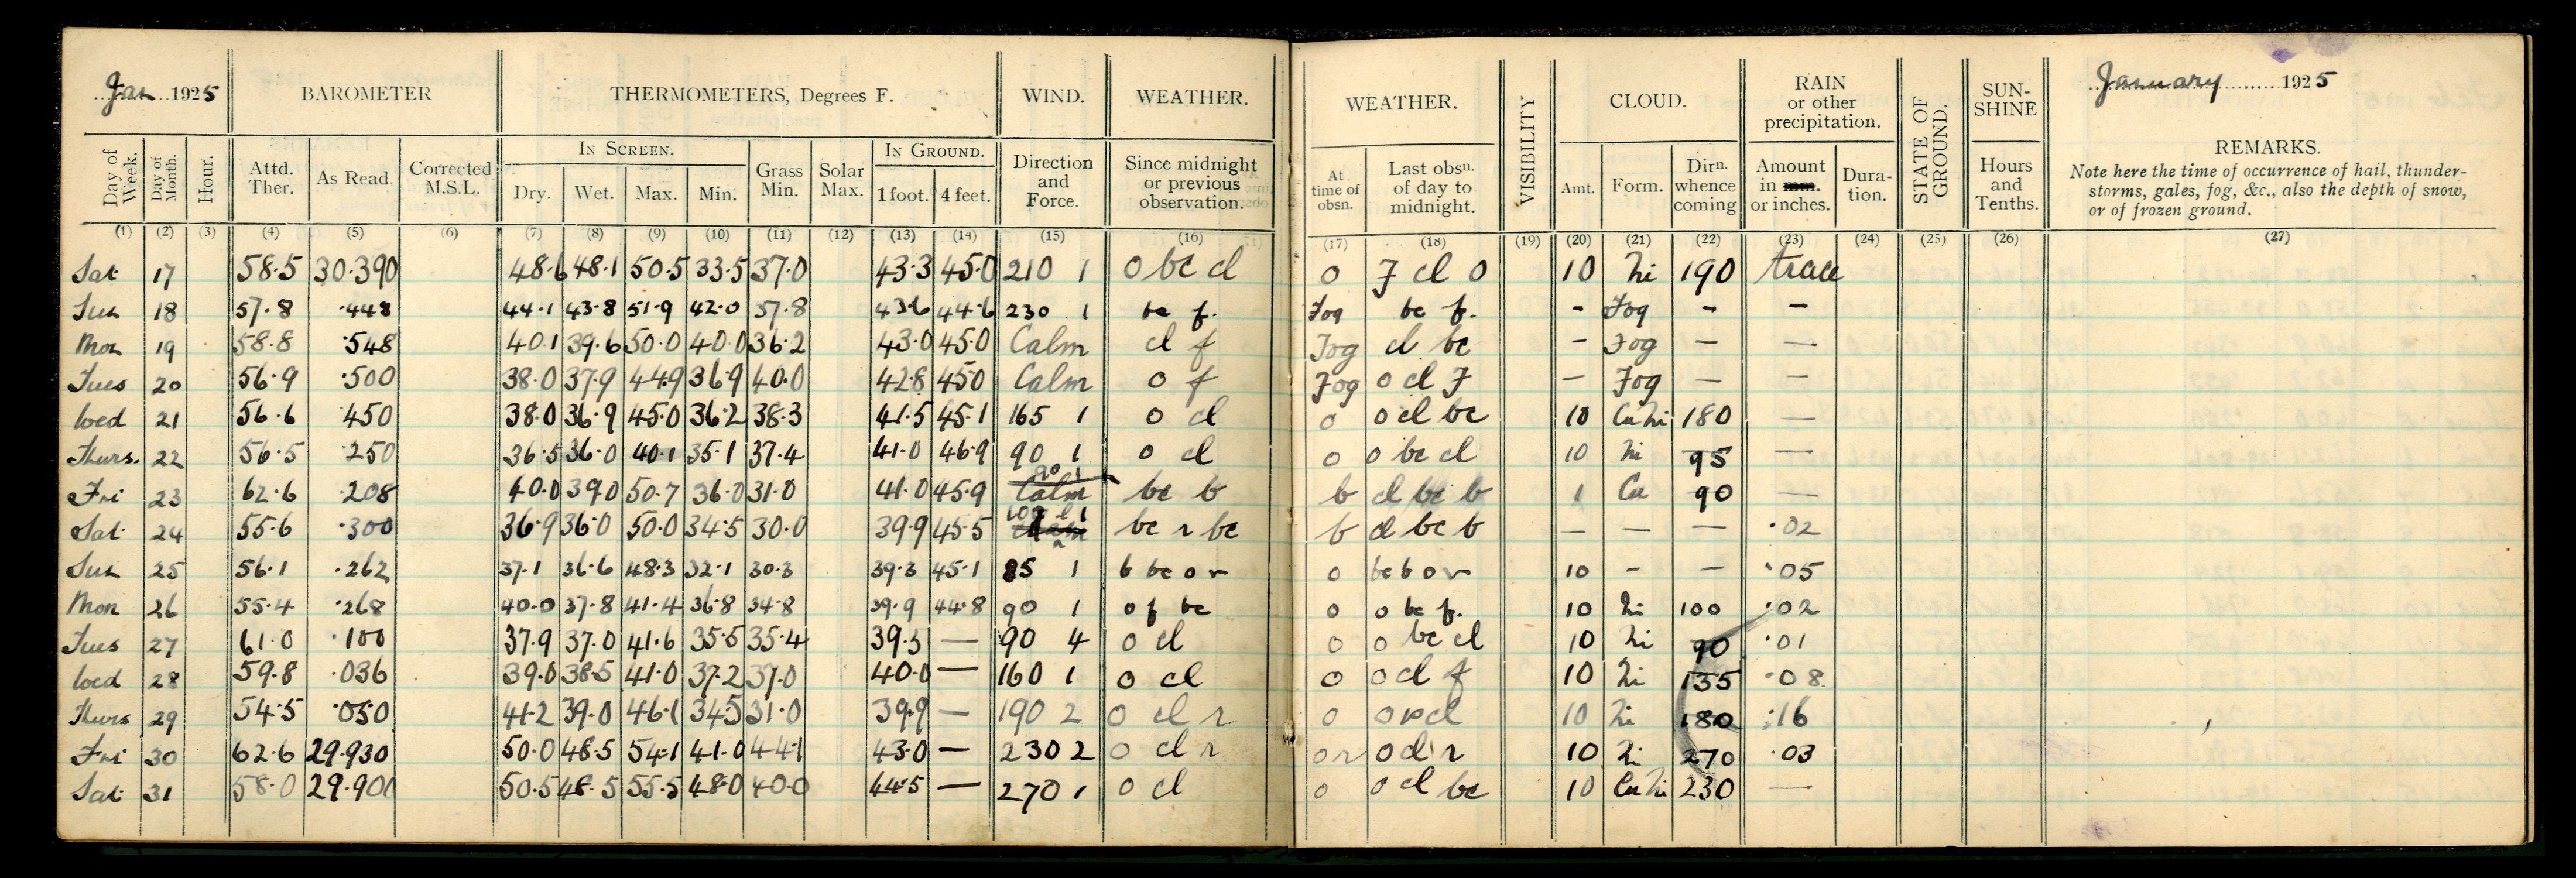 Jan 1925 BAROMETER THERMOMETERS, Degrees F. WIND. WEATHER. WEATHER. VISIBILITY CLOUD. RAIN or other precipitation. STATE OF GROUND. SUN-SHINE January 1925
Day of Week. Day of Month. Hour. Attd. Ther. As Read. Corrected M.S.L. IN SCREEN. Dry. Wet. Max. Min. Grass Min. Solar Max. IN GROUND. 1 foot. 4 feet. Direction and Force. Since midnight or previous observation. At time of obsn. Last obsn. of day to midnight. Amt. Form. Dirn. whence coming Amount in mm. or inches. Dura-tion. Hours and Tenths. REMARKS.
Note here the time of occurrence of hail, thunder-
storms, gales, fog, &c., also the depth of snow,
or of frozen ground.
(1) (2) (3) (4) (5) (6) (7) (8) (9) (10) (11) (12) (13) (14) (15) (16) (17) (18) (19) (20) (21) (22) (23) (24) (25) (26) (27)
Sat 17 58.5 30.390 48.6 48.1 50.5 33.5 37.0 43.3 45.0 210 1 o bc cl o F cl o 10 Ni 190 trace
Sun 18 57.8 .448 44.1 43.8 51.9 42.0 37.8 43.6 44.6 230 1 bc f. Fog bc f. - Fog - -
Mon 19 58.8 .548 40.1 39.6 50.0 40.0 36.2 43.0 45.0 Calm cl f Fog cl bc - Fog - -
Tues 20 56.9 .500 38.0 37.9 44.9 36.9 40.0 42.8 45.0 Calm o f Fog o cl F - Fog - -
Wed 21 56.6 .450 38.0 36.9 45.0 36.2 38.3 41.5 45.1 165 1 o cl o o cl bc 10 Cu Ni 180 -
Thurs. 22 56.5 .250 36.5 36.0 40.1 35.1 37.4 41.0 46.9 90 1 o cl o o bc cl 10 Ni 95 -
Fri 23 62.6 .208 40.0 39.0 50.7 36.0 31.0 41.0 45.9 90 1 Calm bc b b cl bc b 1 Cu 90 -
Sat 24 55.6 .300 36.9 36.0 50.0 34.5 30.0 39.9 45.5 1 bc r bc b cl bc b - - - .02
Sun 25 56.1 .262 37.1 36.6 48.3 32.1 30.3 39.3 45.1 85 1 b bc o r o bc b o r 10 - - .05
Mon 26 55.4 .268 40.0 37.8 41.4 36.8 34.8 39.9 44.8 90 1 o f bc o o bc f. 10 Ni 100 .02
Tues 27 61.0 .100 37.9 37.0 41.6 35.5 35.4 39.5 - 90 4 o cl o o bc cl 10 Ni 90 .01
Wed 28 59.8 .036 39.0 38.5 41.0 37.2 37.0 40.0 - 160 1 o cl o o cl f 10 Ni 135 .08
Thurs 29 54.5 .050 41.2 39.0 46.1 34.5 31.0 39.9 - 190 2 o cl r o o r cl 10 Ni 180 .16
Fri 30 62.6 29.930 50.0 48.5 54.1 41.0 44.1 43.0 - 230 2 o cl r o r o cl r 10 Ni 270 .03
Sat 31 58.0 29.900 50.5 48.5 55.5 48.0 40.0 44.5 - 270 1 o cl o o cl bc 10 Cu Ni 230 -